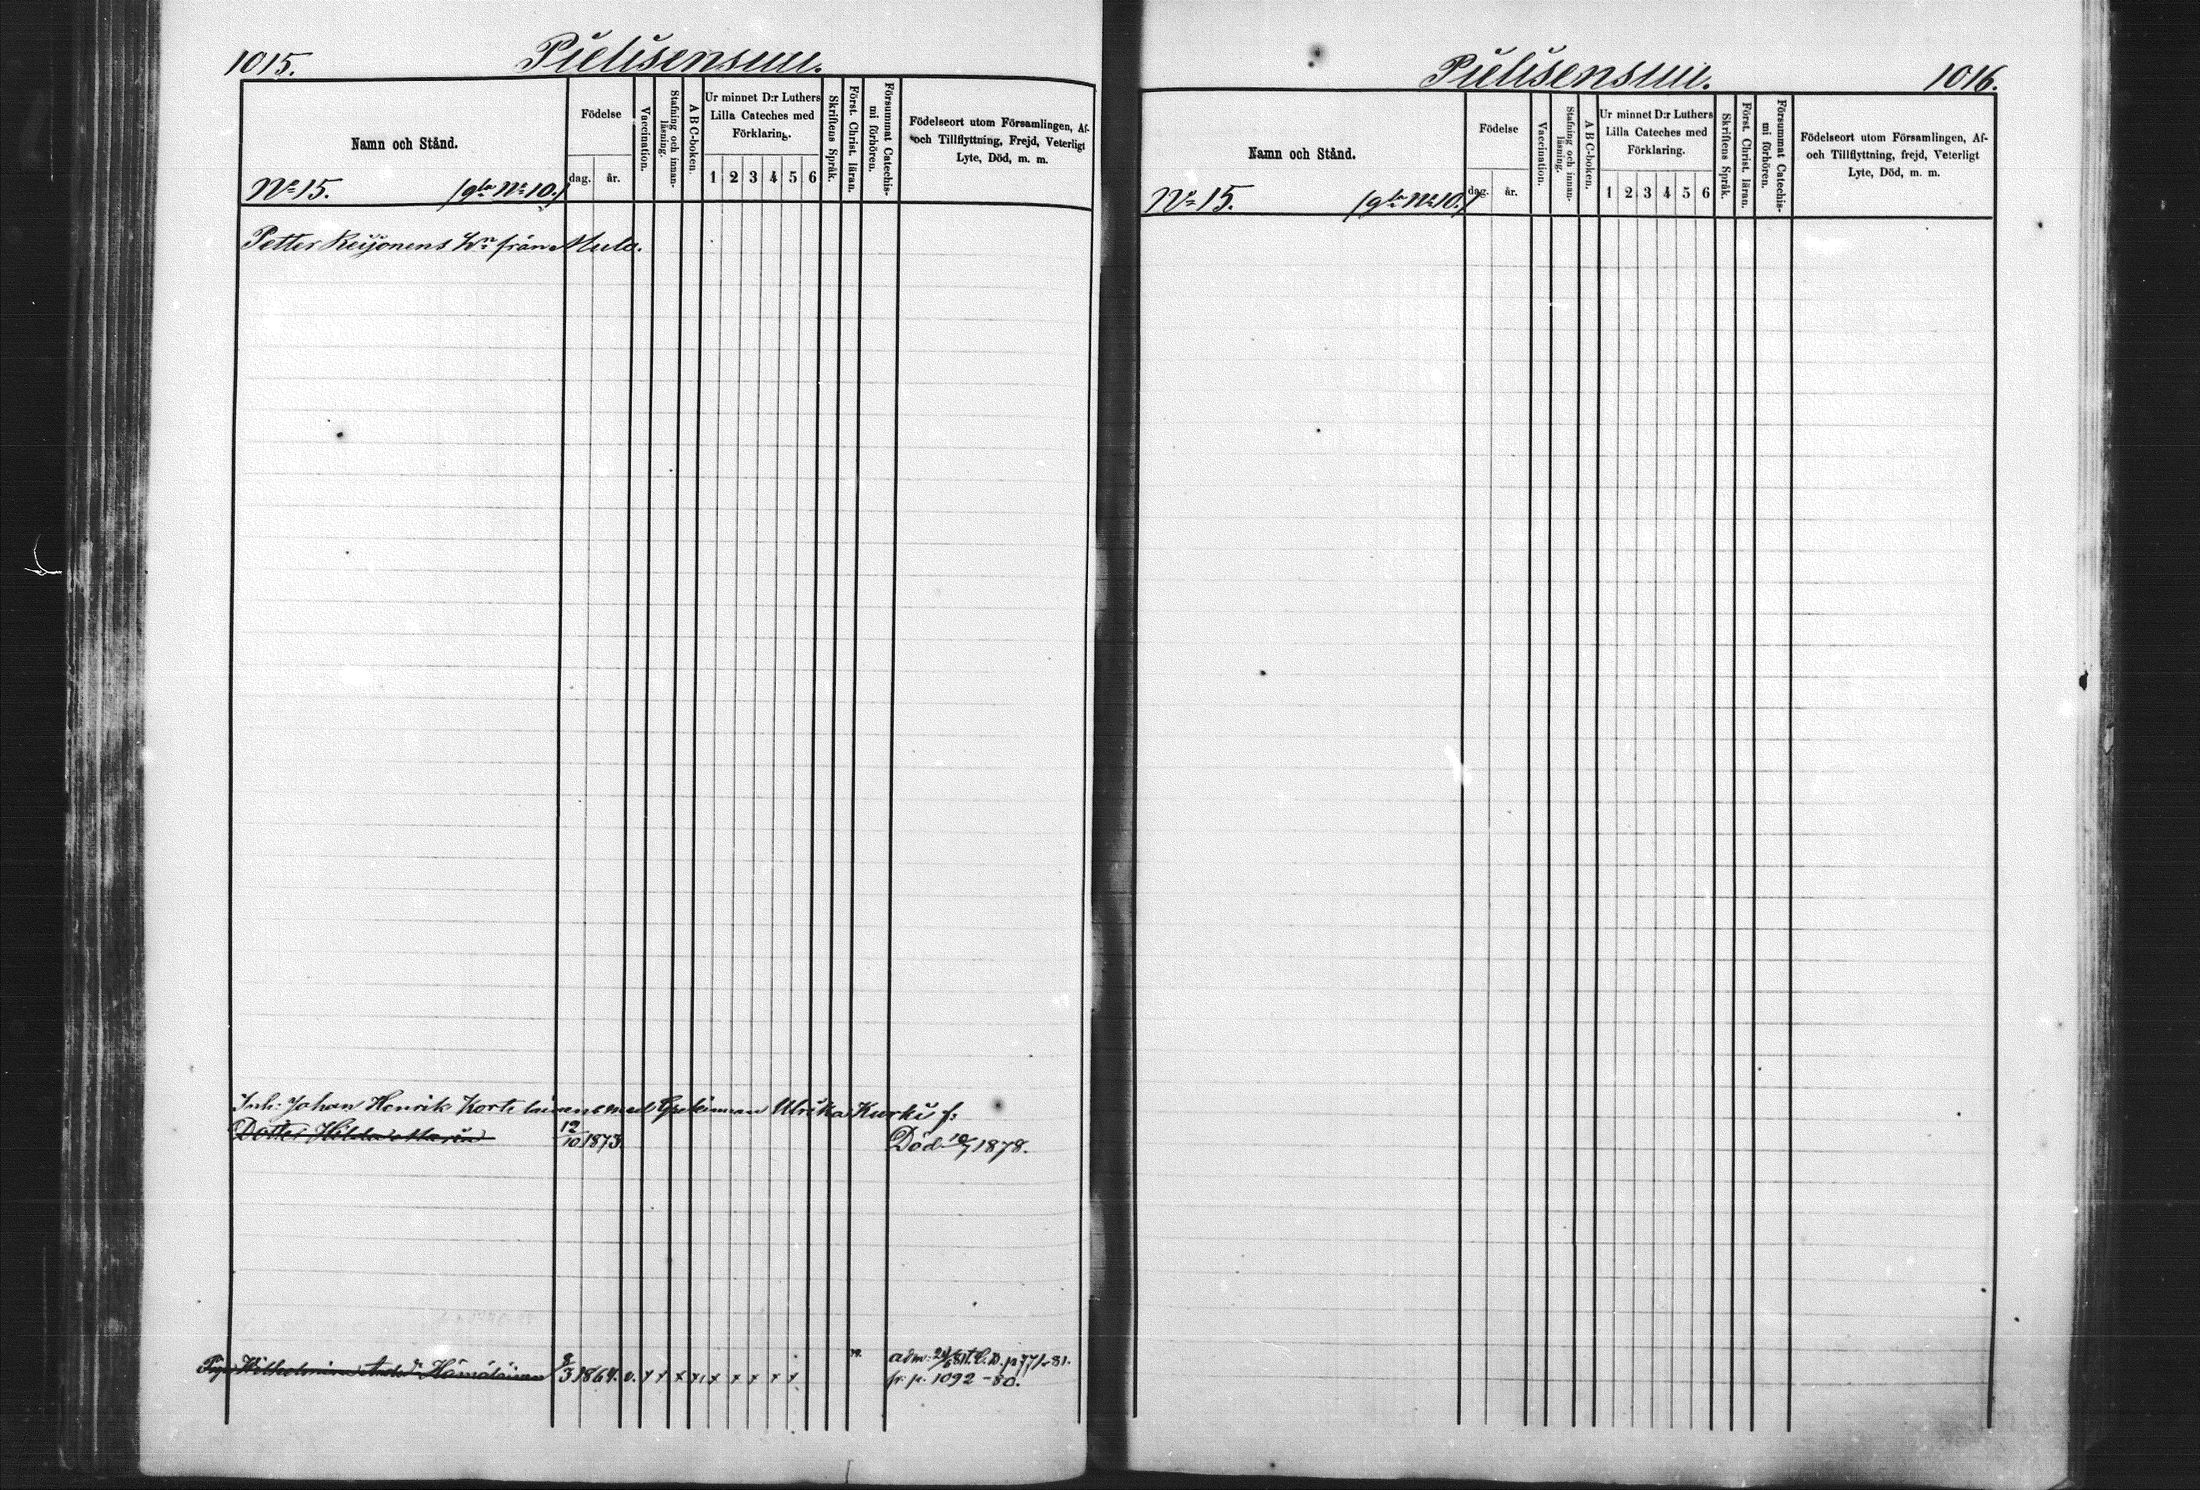 1015. Pielisensuu.
Namn och Stånd.
Födelse
dag. år.
Vaccination.
Stafning och innan-läsning.
A B C-boken.
Ur minnet D:r Luthers
Lilla Cateches med
Förklaring.
1 2 3 4 5 6
Skriftens Språk.
Först. Christ. läran.
Försummat Catechis-mi förhören.
Födelseort utom Församlingen, Af-
och Tillflyttning, Frejd, Veterligt
Lyte, Död, m. m.
No 15. /gla No 10./
Petter Reijonens från Mulo.
Inh: Johan Henrik med Ulrika Kurki f:
Dotter Hilda Maria 12/10 1873. Död 10/7 1878.
adm: p 771-81.
Hämäläinen 9/3 1864. v. x x x x x x x x x fr. p. 1092-80.
Pielisensuu. 1016.
Namn och Stånd.
Födelse
dag. år.
Vaccination.
Stafning och innan-läsning.
A B C-boken.
Ur minnet D:r Luthers
Lilla Cateches med
Förklaring.
1 2 3 4 5 6
Skriftens Språk.
Först. Christ. läran.
Försummat Catechis-mi förhören.
Födelseort utom Församlingen, Af-
och Tillflyttning, frejd, Veterligt
Lyte, Död, m. m.
No 15. /gla No 10./